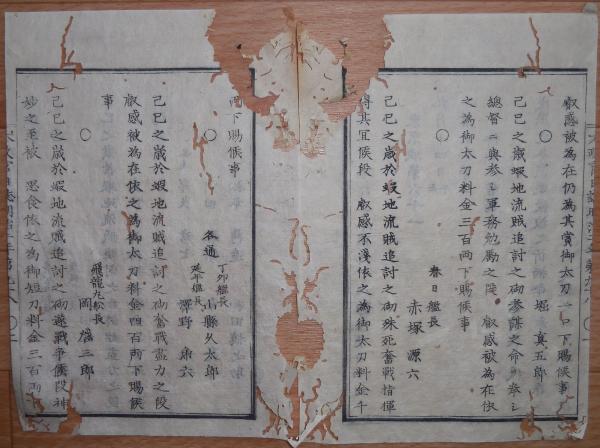 叡感被為在仍為其賞御太刀一口下賜候事
○
堀真五郎
己巳之歳於蝦地流賊追討之砌参謀之命ヲ奉シ
総督ニ與参シ軍務勉励之段 叡感被為在依
之為御太刀料金三百両下賜候事
○
春日艦長
赤塚源六
己巳之歳於蝦地流賊追討之砌殊死奮戦指揮
得其宜候段 叡感不浅依之為御太刀料金千
両下賜候事
○
各通
丁卯艦長
山縣久太郎
延年艦長
澤野
己巳之歳於蝦地流賊追討之砌奮戦盡力之段
叡感被為在依之為御太刀料金四百両下賜候
事
○
飛龍丸船長
岡
三郎
己巳之歳於蝦地流賊追討之砌遂戦争候段神
妙之至被 思食依之為御短刀料金三百両下